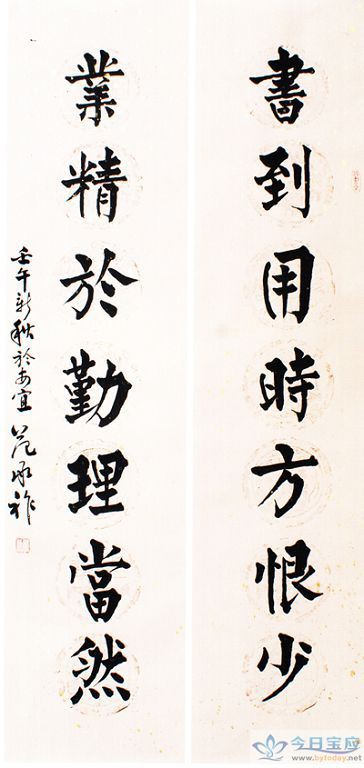 書到用時方恨少
業精於勤理當然
壬午新秋於安宜 范承祚
今日宝应
www.bytoday.net